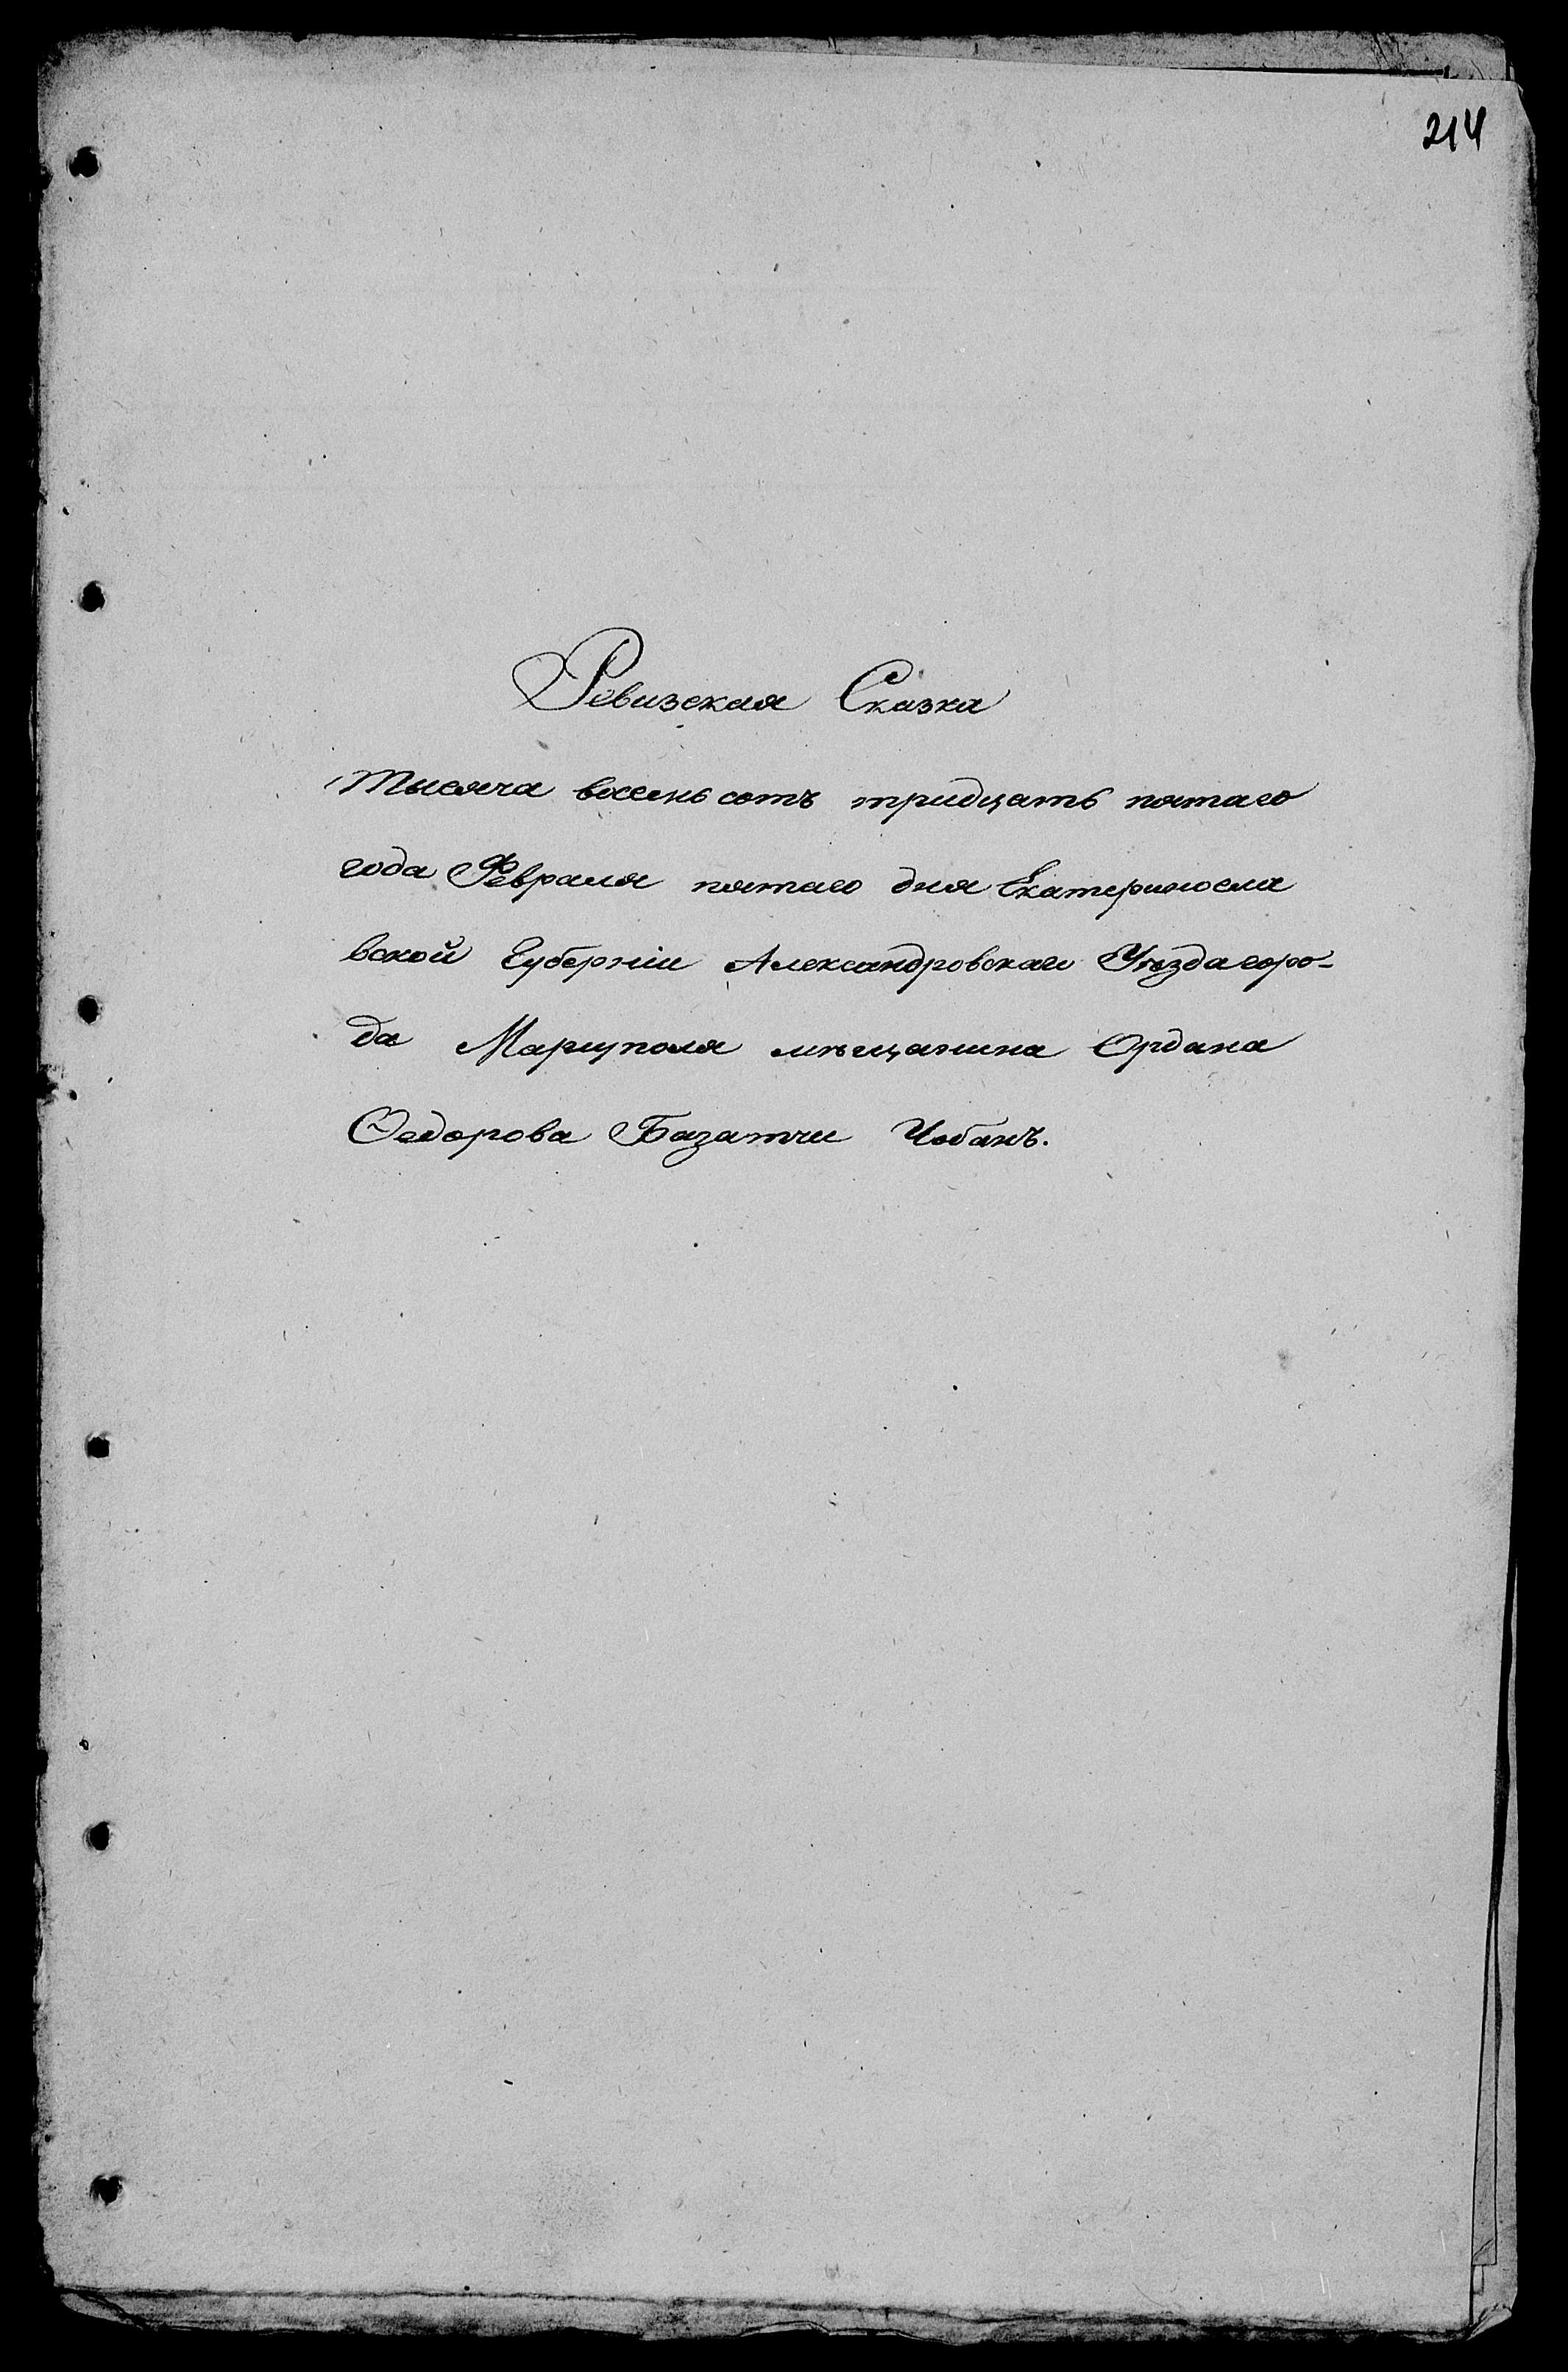 214
Ревизская Сказка
Тысяча восемь сотъ тридцать пятаго
года Февраля пятаго дня Екатериносла
вской Губерніи Александровскаго Уѣзда горо-
да Маріуполя мѣщанина Ордана
Ѳедорова Базатчи Чобанъ.